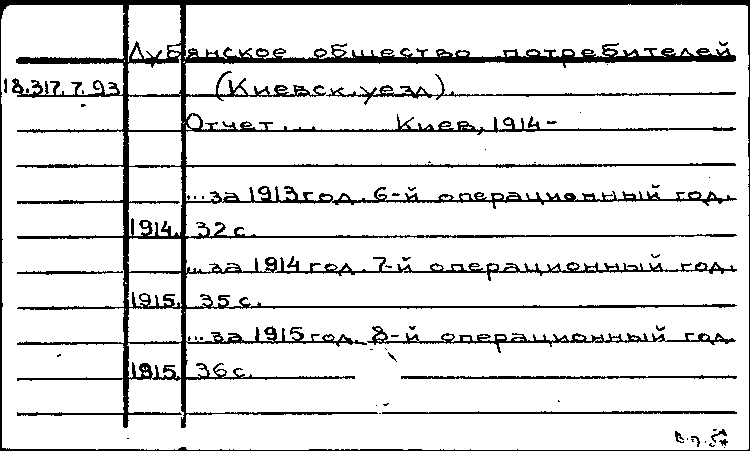 Лубянское общество потребителей
18.317.7.93 (Киевск. уезд).
Отчет... Киев, 1914-
...за 1913 год. 6-й операционный год.
1914. 32 с.
...за 1914 год. 7-й операционный год.
1915. 35 с.
...за 1915 год. 8-й операционный год
1915. 36 с.